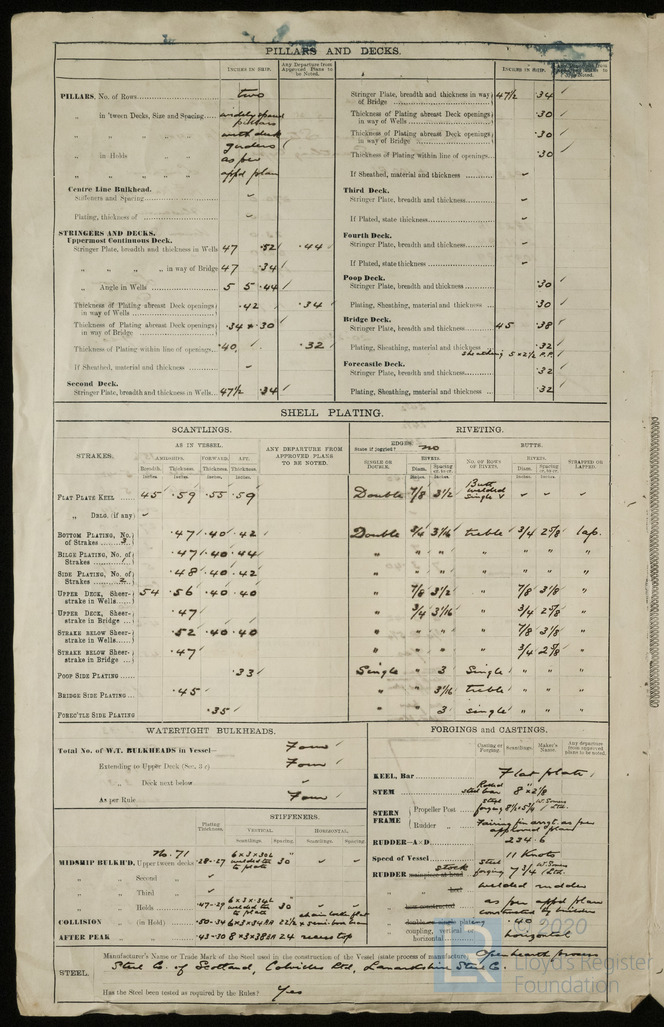 PILLARS AND DECKS.
INCHES IN SHIP.
Any Departure from Approved Plans to be Noted.
PILLARS, No. of Rows two
„ in 'tween Decks, Size and Spacing widely spaced pillars
„ „ „ „ with deck
„ in Holds „ girders
„ „ „ „ as per
„ „ „ „ appd plan
Centre Line Bulkhead.
Stiffeners and Spacing
Plating, thickness of
STRINGERS AND DECKS.
Uppermost Continuous Deck.
Stringer Plate, breadth and thickness in Wells 47 .52 .44
„ „ „ „ in way of Bridge 47 .34
„ Angle in Wells 5 5 .44
Thickness of Plating abreast Deck openings in way of Wells .42 .34
Thickness of Plating abreast Deck openings in way of Bridge .34 & .30
Thickness of Plating within line of openings .40 .32
If Sheathed, material and thickness
Second Deck.
Stringer Plate, breadth and thickness in Wells 47½ .34
INCHES IN SHIP.
Stringer Plate, breadth and thickness in way of Bridge 47½ .34
Thickness of Plating abreast Deck openings in way of Wells .30
Thickness of Plating abreast Deck openings in way of Bridge .30
Thickness of Plating within line of openings .30
If Sheathed, material and thickness
Third Deck.
Stringer Plate, breadth and thickness
If Plated, state thickness
Fourth Deck.
Stringer Plate, breadth and thickness
If Plated, state thickness
Poop Deck.
Stringer Plate, breadth and thickness .30
Plating, Sheathing, material and thickness .30
Bridge Deck.
Stringer Plate, breadth and thickness 45 .38
Plating, Sheathing, material and thickness .32
sheathing 5 x 2½ P.P.
Forecastle Deck.
Stringer Plate, breadth and thickness .32
Plating, Sheathing, material and thickness .32
SHELL PLATING.
SCANTLINGS.
RIVETING.
STRAKES.
AS IN VESSEL.
AMIDSHIPS. FORWARD. AFT.
Breadth. Thickness. Thickness. Thickness.
ANY DEPARTURE FROM APPROVED PLANS TO BE NOTED.
EDGES
State if joggled? no
SINGLE OR DOUBLE.
RIVETS.
Diam. Spacing cr. to cr.
BUTTS.
No. OF ROWS OF RIVETS.
RIVETS.
Diam. Spacing cr. to cr.
STRAPPED OR LAPPED.
FLAT PLATE KEEL 45 .59 .55 .59 Double 7/8 3½ Butt welded single
„ DBLG. (if any)
BOTTOM PLATING, No. of Strakes 3 .47 .40 .42 Double 3/4 3 1/16 treble 3/4 2 5/8 lap.
BILGE PLATING, No. of Strakes 1 .47 .40 .44 „ „ „ „ „ „ „
SIDE PLATING, No. of Strakes 2 .48 .40 .42 „ „ „ „ „ „ „
UPPER DECK, Sheerstrake in Wells 54 .56 .40 .40 „ 7/8 3½ „ 7/8 3 1/8 „
UPPER DECK, Sheerstrake in Bridge .47 „ 3/4 3 1/16 „ 3/4 2 5/8 „
STRAKE BELOW Sheerstrake in Wells .52 .40 .40 „ „ „ „ 7/8 3 1/8 „
STRAKE BELOW Sheerstrake in Bridge .47 „ „ „ „ 3/4 2 5/8 „
POOP SIDE PLATING .33 Single „ 3 Single „ „ „
BRIDGE SIDE PLATING .45 „ „ 3 1/16 treble „ „ „
FORE'C'TLE SIDE PLATING .35 „ „ 3 single „ „ „
WATERTIGHT BULKHEADS.
Total No. of W.T. BULKHEADS in Vessel— Four
Extending to Upper Deck (Sec. 3 c) Four
„ Deck next below
As per Rule Four
Plating Thickness.
STIFFENERS.
VERTICAL. HORIZONTAL.
Scantlings. Spacing. Scantlings. Spacing.
No. 71
MIDSHIP BULKH'D, Upper 'tween decks .28-.27 6 x 3 x .30L welded to plate 30
„ „ Second „
„ „ Third „
„ „ Holds .47-.29 6 x 3 x .34L welded to plate 30
COLLISION „ (in Hold) .50-.34 6 x 3 x .34BA 22½
AFTER PEAK „ „ .43-.30 8 x 3 x .38BA 24 recess top
FORGINGS and CASTINGS.
Casting or Forging. Scantlings. Maker's Name. Any departure from approved plans to be noted.
KEEL, Bar Flat plate
STEM Rolled steel bar 8" x 2 1/8
STERN FRAME
Propeller Post Steel forging
Rudder „ Fairing fin arrgt. as per approved plan
RUDDER—A x D 234.6
Speed of Vessel 11 Knots
RUDDER stock Steel forging 7¾
welded rudder
as per appd plan
constructed by builders
.40
„ coupling, vertical horizontal horizontal
STEEL.
Manufacturer's Name or Trade Mark of the Steel used in the construction of the Vessel (state process of manufacture) Open hearth process
Steel Co. of Scotland, Colvilles Ltd, Lanarkshire Steel Co.
Has the Steel been tested as required by the Rules? Yes
© 2020
Lloyd's Register
Foundation